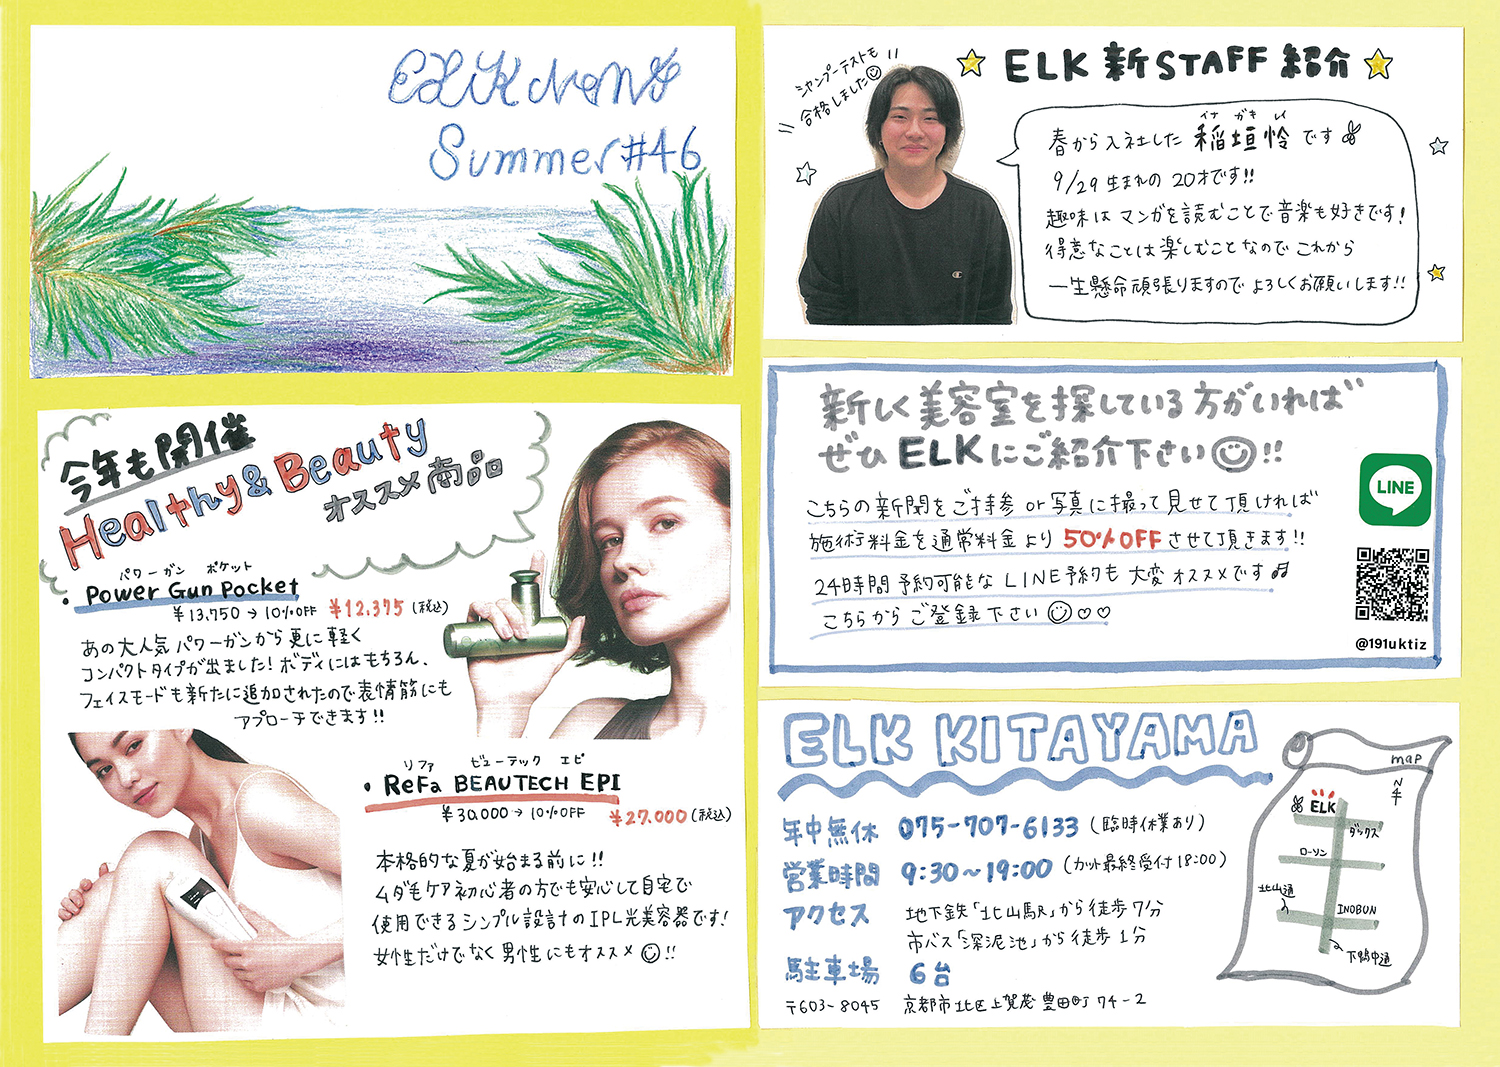 ELK News
Summer #46
今年も開催
Healthy & Beauty
オススメ商品
パワーガン ポケット
・Power Gun Pocket
¥13,750→10%OFF ¥12,375(税込)
あの大人気パワーガンから更に軽く
コンパクトタイプが出ました!ボディにはもちろん、
フェイスモードも新たに追加されたので表情筋にも
アプローチできます!!
リファ ビューテック エピ
・ReFa BEAUTECH EPI
¥30,000→10%OFF ¥27,000(税込)
本格的な夏が始まる前に!!
ムダ毛ケア初心者の方でも安心して自宅で
使用できるシンプル設計のIPL光美容器です!
女性だけでなく男性にもオススメ!!
シャンプーテストも
合格しました
ELK 新STAFF紹介
イナ ガキ レイ
春から入社した 稲垣怜 です
9/29生まれの 20才です!!
趣味は マンガを読むことで音楽も好きです!
得意なことは楽しむことなので これから
一生懸命頑張りますので よろしくお願いします!!
新しく美容室を探している方がいれば
ぜひELKにご紹介下さい!!
こちらの新聞をご持参 or 写真に撮って見せて頂ければ
施術料金を通常料金より 50%OFFさせて頂きます!!
24時間予約可能な LINE予約も 大変オススメです♬
こちらから ご登録下さい♡♡
LINE
@191uktiz
ELK KITAYAMA
年中無休 075-707-6133(臨時休業あり)
営業時間 9:30~19:00(カット最終受付18:00)
アクセス 地下鉄「北山駅」から徒歩7分
市バス「深泥池」から徒歩1分
駐車場 6台
〒603-8045 京都市北区上賀茂豊田町74-2
map
N
ELK
ダックス
ローソン
北山通
INOBUN
下鴨中通